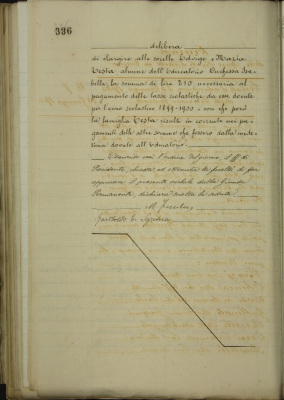 336
delibera
di elargire alle sorelle Edvige e Maria
Testa alunne dell'Educatorio Duchessa Isa-
bella, la somma di lire 250 necessaria al
pagamento delle tasse scolastiche da esse dovute
per l'anno scolastico 1899-1900 - ove che però
la famiglia Testa risulti in corrente nei pa-
gamenti delle altre somme che fossero dalla mede-
sima dovute all'Educatorio.
Esaurito così l'ordine del giorno, il ff di
Presidente, chiede ed ottenuta la facoltà di far
approvare il presente verbale dalla Giunta
Permanente, dichiara sciolta la seduta.